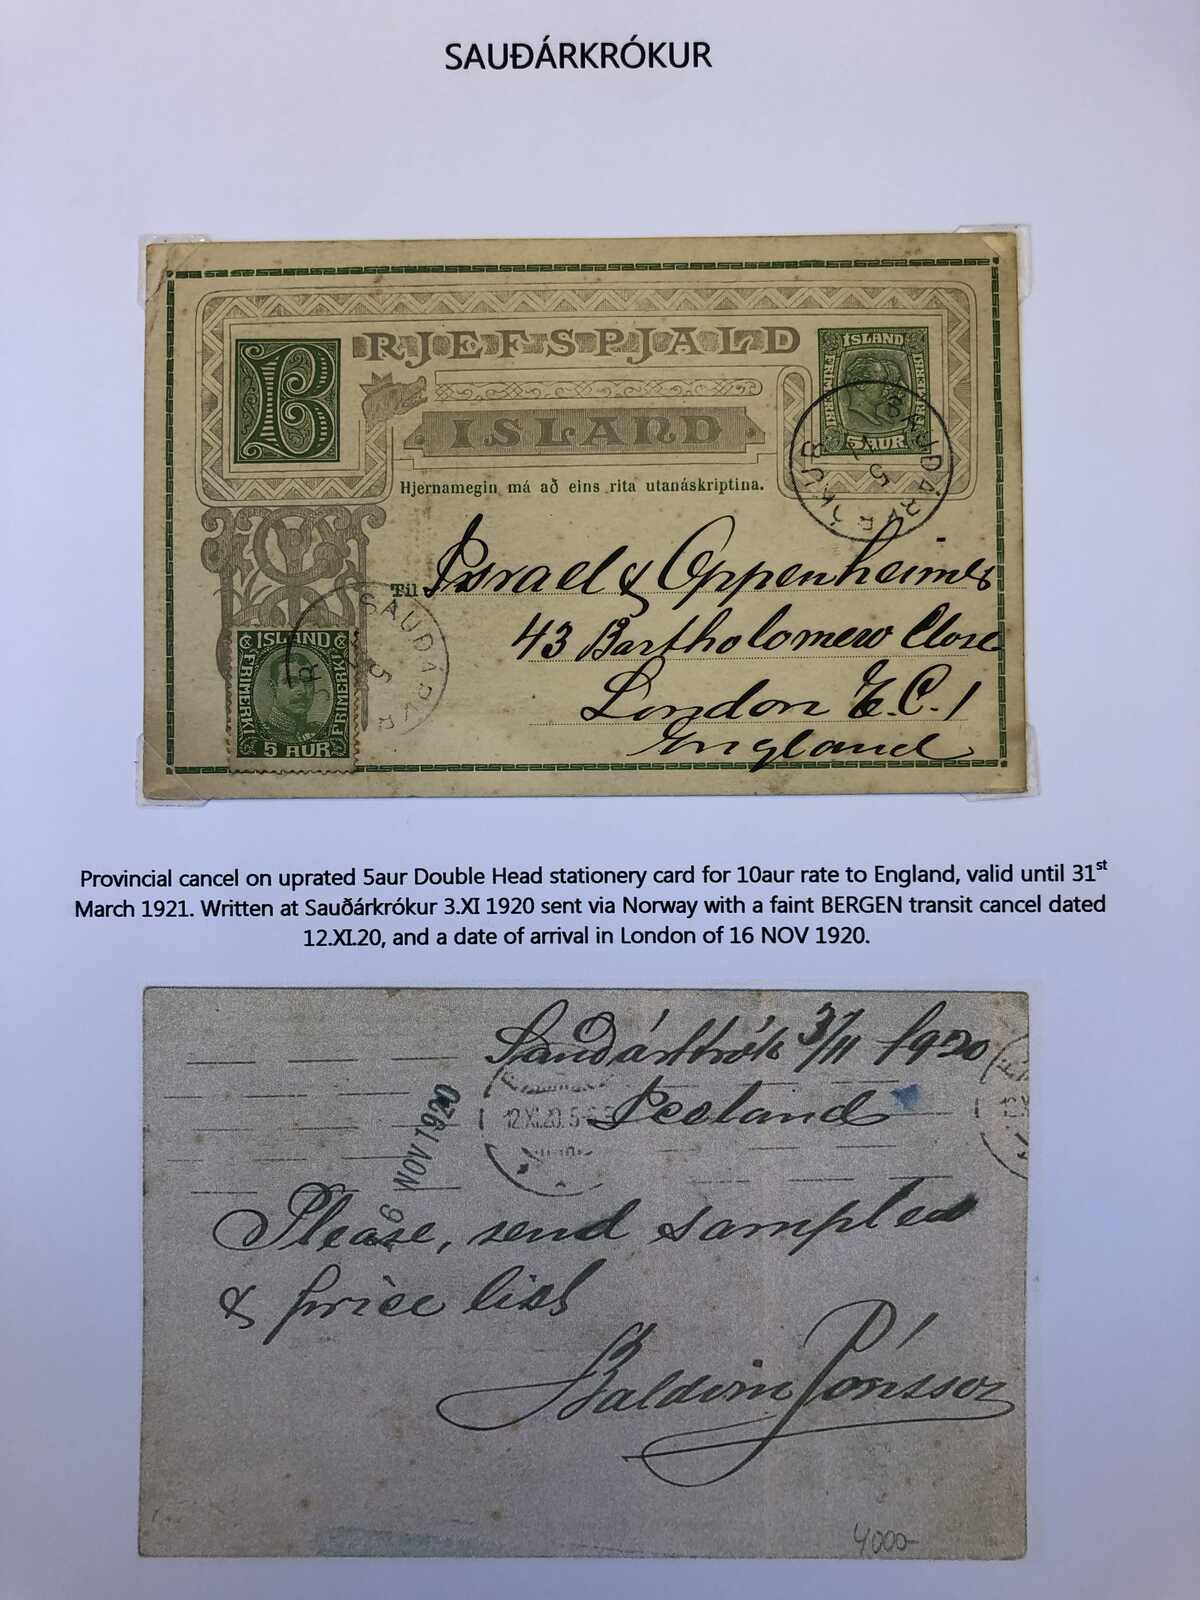 SAUÐÁRKRÓKUR
BRJEFSPJALD
ISLAND
Hjernamegin má að eins rita utanáskriptina.
ÍSLAND
5 AUR
5
Til Israel & Oppenheimer
43 Bartholomew Close
London E.C.1
England
SAUÐÁRKR
5
ISLAND
FRIMERKI
FRIMERKI
5 AUR
Provincial cancel on uprated 5aur Double Head stationery card for 10aur rate to England, valid until 31st
March 1921. Written at Sauðárkrókur 3.XI 1920 sent via Norway with a faint BERGEN transit cancel dated
12.XI.20, and a date of arrival in London of 16 NOV 1920.
Sauðárkrók 3/11 1920
Iceland
12.XI.20.5-6
6 NOV 1920
Please, send samples
& price list
Baldvin Jónsson
4000-